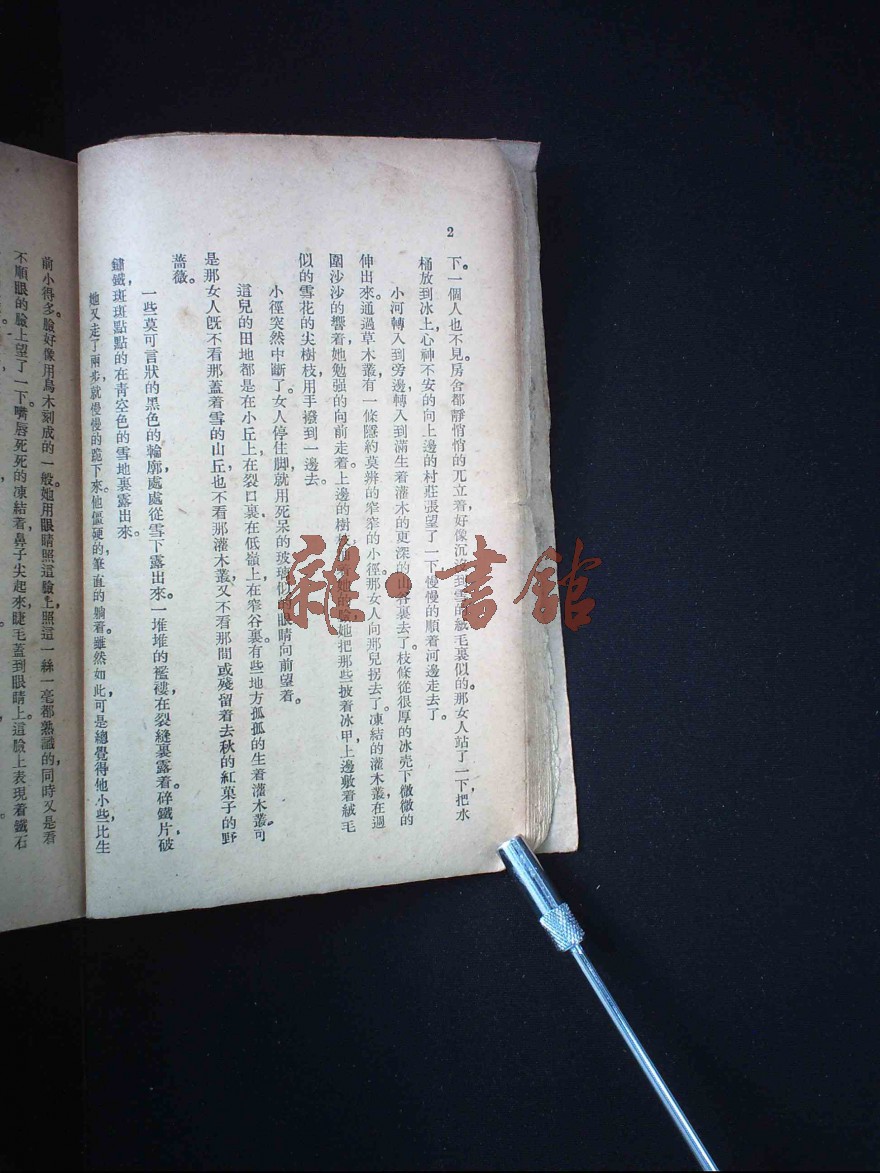 2
下。一個人也不見。房舍都靜悄悄的兀立着，好像沉到雪的絨毛裏似的。那女人站了一下，把水
桶放到冰上，心神不安的向上邊的村莊張望了一下，慢慢的順着河邊走去了。
小河轉入到旁邊，轉入到滿生着灌木的更深的山谷裏去了。枝條從很厚的冰壳下微微的
伸出來。通過草木叢，有一條隱約莫辨的窄窄的小徑。那女人向那兒拐去了。凍結的灌木叢在週
圍沙沙的響着，她勉强的向前走着。上邊的樹枝她的臉，她把那些披着冰甲，上邊敷着絨毛
似的雪花的尖樹枝，用手撥到一邊去。
小徑突然中斷了。女人停住脚，就用死呆的玻璃似的眼睛向前望着。
這兒的田地都是在小丘上，在裂口裏，在低嶺上，在窄谷裏。有些地方孤孤的生着灌木叢。可
是那女人旣不看那蓋着雪的山丘，也不看那灌木叢，又不看那間或殘留着去秋的紅菓子的野
薔薇。
一些莫可言狀的黑色的輪廓，處處從雪下露出來。一堆堆的襤褸在裂縫裏露着。碎鐵片，破
鏽鐵，斑斑點點的在青空色的雪地裏露出來。
她又走了兩步，就慢慢的跪下來。他僵硬的，筆直的躺着。雖然如此，可是總覺得他小些，比生
前小得多。臉好像用烏木刻成的一般。她用眼睛照這臉上照這一絲一毫都熟識的，同時又是看
不順眼的臉上望了一下。嘴唇死死的凍結着，鼻子尖起來，睫毛蓋到眼睛上，這臉上表現着鐵石
雜·書館